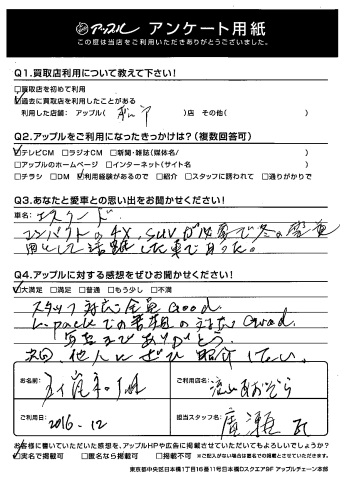 アップル アンケート用紙
この度は当店をご利用いただきありがとうございました。
Q1.買取店利用について教えて下さい!
□買取店を初めて利用
☑過去に買取店を利用したことがある
利用した店舗: アップル( )店 その他( )
Q2.アップルをご利用になったきっかけは?(複数回答可)
☑テレビCM □ラジオCM □新聞・雑誌(媒体名/ )
□アップルのホームページ □インターネット(サイト名 )
□チラシ □DM ☑利用経験があるので □紹介 □スタッフに誘われて □通りがかりで
Q3.あなたと愛車との思い出をお聞かせください!
車名: エスクード
コンパクトの4X, SUVが必要で冬の雪道
用として活躍した車であった。
Q4.アップルに対する感想をぜひお聞かせください!
☑大満足 □満足 □普通 □もう少し □不満
スタッフ対応全員Good.
Good.
ありがとう
次回、他人にぜひ紹介したい。
お名前:
ご利用店名: 流山おおぞら
ご利用日: 2016.12
担当スタッフ名: 廣瀬
お客様に書いていただいた感想を、アップルHPや広告に掲載させていただいてもよろしいでしょうか?
☑実名で掲載可 □匿名なら掲載可 □掲載不可 ※ご記入がない場合は匿名での掲載とさせていただきます。
東京都中央区日本橋1丁目16番11号日本橋Dスクエア9F アップルチェーン本部